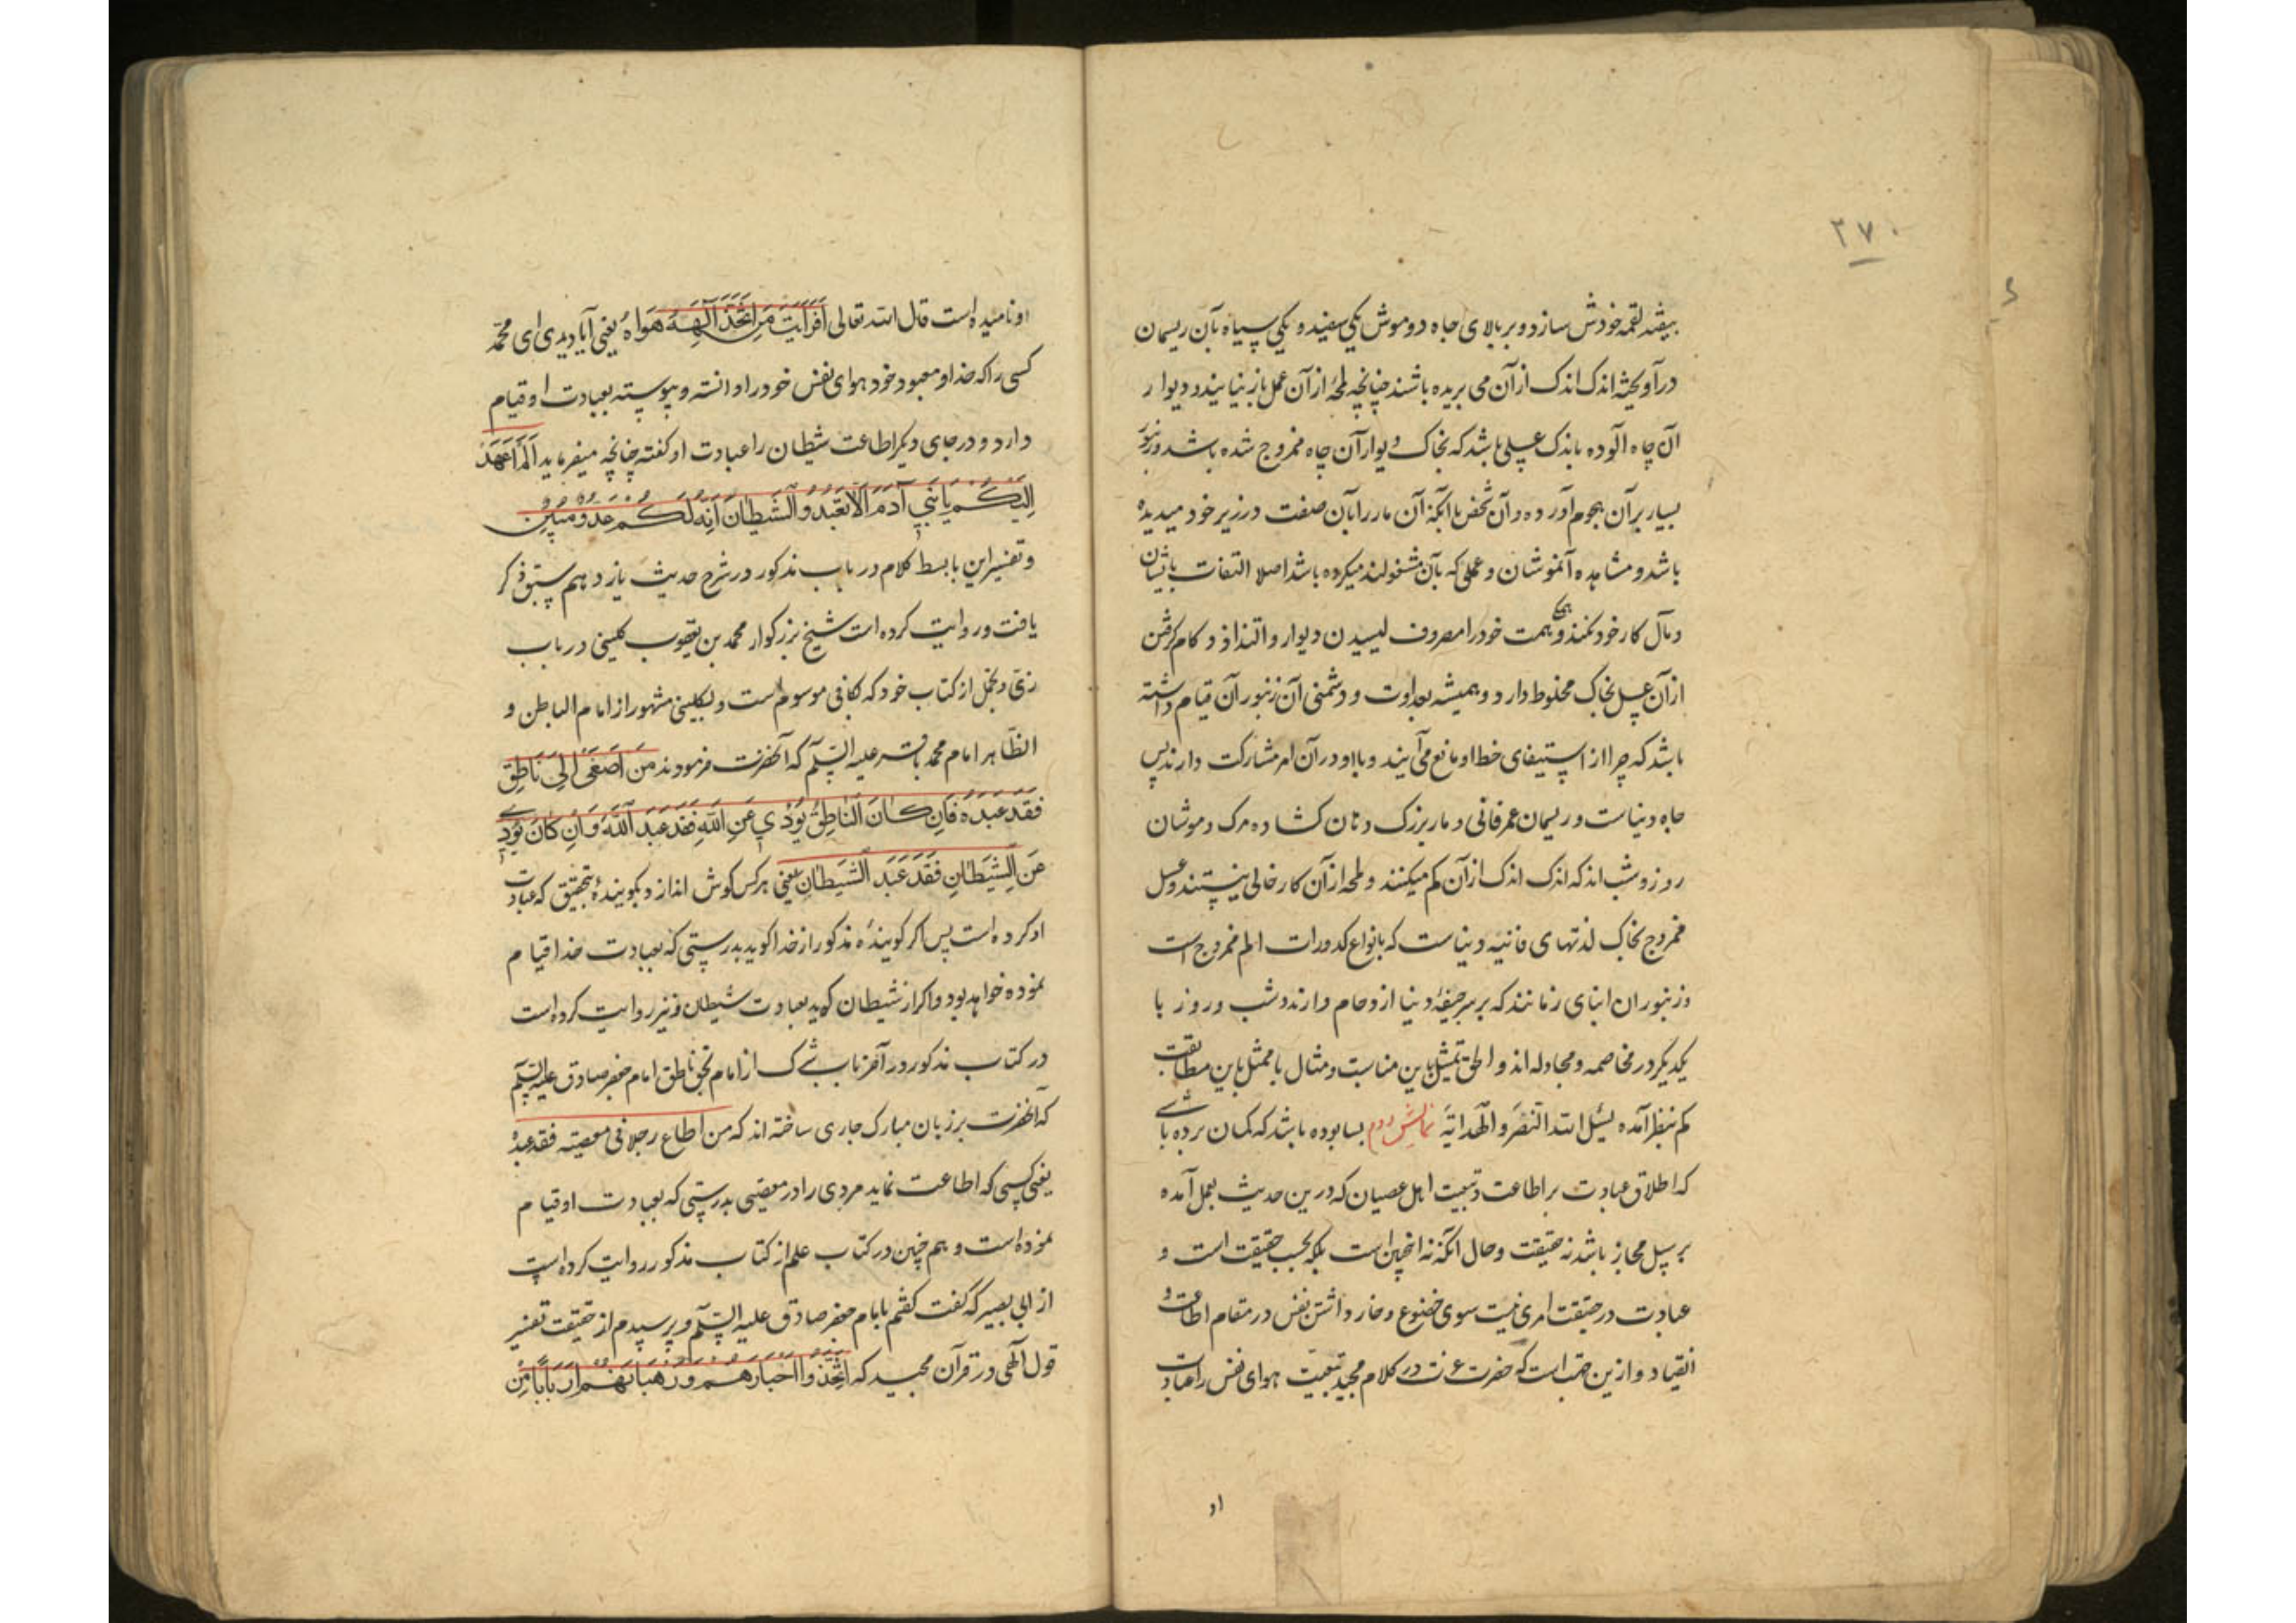 ۲۷۰
بیفتد لقمه خودش سازد و بر بالای چاه دو موش یکی سفید و یکی سیاه بآن ریسمان
درآویخته اندک اندک از آن می بریده باشند چنانچه لمحۀ از آن عمل باز نیایند و دیوار
آن چاه آلوده باندک عسلی باشد که بخاک دیوار آن چاه ممزوج شده باشد و زنبور
بسیار بر آن هجوم آورده و آن شخص باآنکه آن مار را بآن صفت در زیر خود میدیده
باشد و مشاهده آنموشان و عملی که بآن مشغولند میکرده باشد اصلا التفات بایشان
و مآل کار خود نکند و همگی همت خود را مصروف لیسیدن دیوار و التذاذ و کام گرفتن
از آن عسل بخاک مخلوط دارد و همیشه بعداوت و دشمنی آن زنبوران قیام داشته
باشد که چرا از استیفای حظ او مانع می آیند و با او در آن امر مشارکت دارند پس
چاه دنیاست و ریسمان عمر فانی و مار بزرگ دهان کشاده مرک و موشان
روز و شب اند که اندک اندک از آن کم میکنند و لمحه از آن کار خالی نیستند و عسل
ممزوج بخاک لذتهای فانیه دنیاست که بانواع کدورات الم ممزوج است
و زنبوران ابنای زمانند که بر سر جیفۀ دنیا ازدحام دارند و شب و روز با
یکدیکر در مخاصمه و مجادله اند و الحق تمثیل باین مناسبت و مثال با ممثل باین مطابقت
کم بنظر آمده نسئل الله النصر و الهدایة نمایش دوم بسا بوده باشد که کمان برده باشی
که اطلاق عبادت بر اطاعت و تبعیت اهل عصیان که درین حدیث بعمل آمده
بر سبیل مجاز باشد نه حقیقت و حال آنکه نه اینچنین است بلکه بحسب حقیقت است و
عبادت در حقیقت امری نیست سوی خضوع و خوار داشتن نفس در مقام اطاعت و
انقیاد و ازین جهت است که حضرت عزت در کلام مجید تبعیت هوای نفس را عبادت
او
او نامیده است قال الله تعالی اَفَرَاَیْتَ مَنِ اتَّخَذَ اِلٰهَهُ هَوَاهُ یعنی آیا دیدی ای محمد
کسی را که خدا و معبود خود هوای نفس خود را دانسته و پیوسته بعبادت او قیام
دارد و در جای دیکر اطاعت شیطان را عبادت او کفته چنانچه میفرماید اَلَمْ اَعْهَدْ
اِلَیْکُمْ یَا بَنِی آدَمَ اَلَّا تَعْبُدُوا الشَّیْطَانَ اِنَّهُ لَکُمْ عَدُوٌّ مُبِینٌ
و تفسیر این با بسط کلام در باب مذکور در شرح حدیث یازدهم سبق ذکر
یافت و روایت کرده است شیخ بزرکوار محمد بن یعقوب کلینی در باب
زی و تجمل از کتاب خود که بکافی موسوم است و بکلینی مشهور از امام الباطن و
الظاهر امام محمد باقر علیه السلام که آنحضرت فرمودند مَنْ اَصْغَی اِلَی نَاطِقٍ
فَقَدْ عَبَدَهُ فَاِنْ کَانَ النَّاطِقُ یُؤَدِّی عَنِ اللّٰهِ فَقَدْ عَبَدَ اللّٰهَ وَ اِنْ کَانَ یُؤَدِّی
عَنِ الشَّیْطَانِ فَقَدْ عَبَدَ الشَّیْطَانَ یعنی هر کس کوش اندازد بکویندۀ بتحقیق که عبادت
او کرده است پس اکر کویندۀ مذکور از خدا کوید بدرستی که بعبادت خدا قیام
نموده خواهد بود و اکر از شیطان کوید بعبادت شیطان و نیز روایت کرده است
در کتاب مذکور در آخر باب شرک از امام بحق ناطق امام جعفر صادق علیه السلام
که آنحضرت بر زبان مبارک جاری ساخته اند که من اطاع رجلا فی معصیته فقد عبده
یعنی کسی که اطاعت نماید مردی را در معصیتی بدرستی که بعبادت او قیام
نموده است و هم چنین در کتاب علم از کتاب مذکور روایت کرده است
از ابی بصیر که گفت کفتم بامام جعفر صادق علیه السلام و پرسیدم از حقیقت تفسیر
قول آلهی در قرآن مجید که اِتَّخَذُوا اَحْبَارَهُمْ وَ رُهْبَانَهُمْ اَرْبَابًا مِنْ